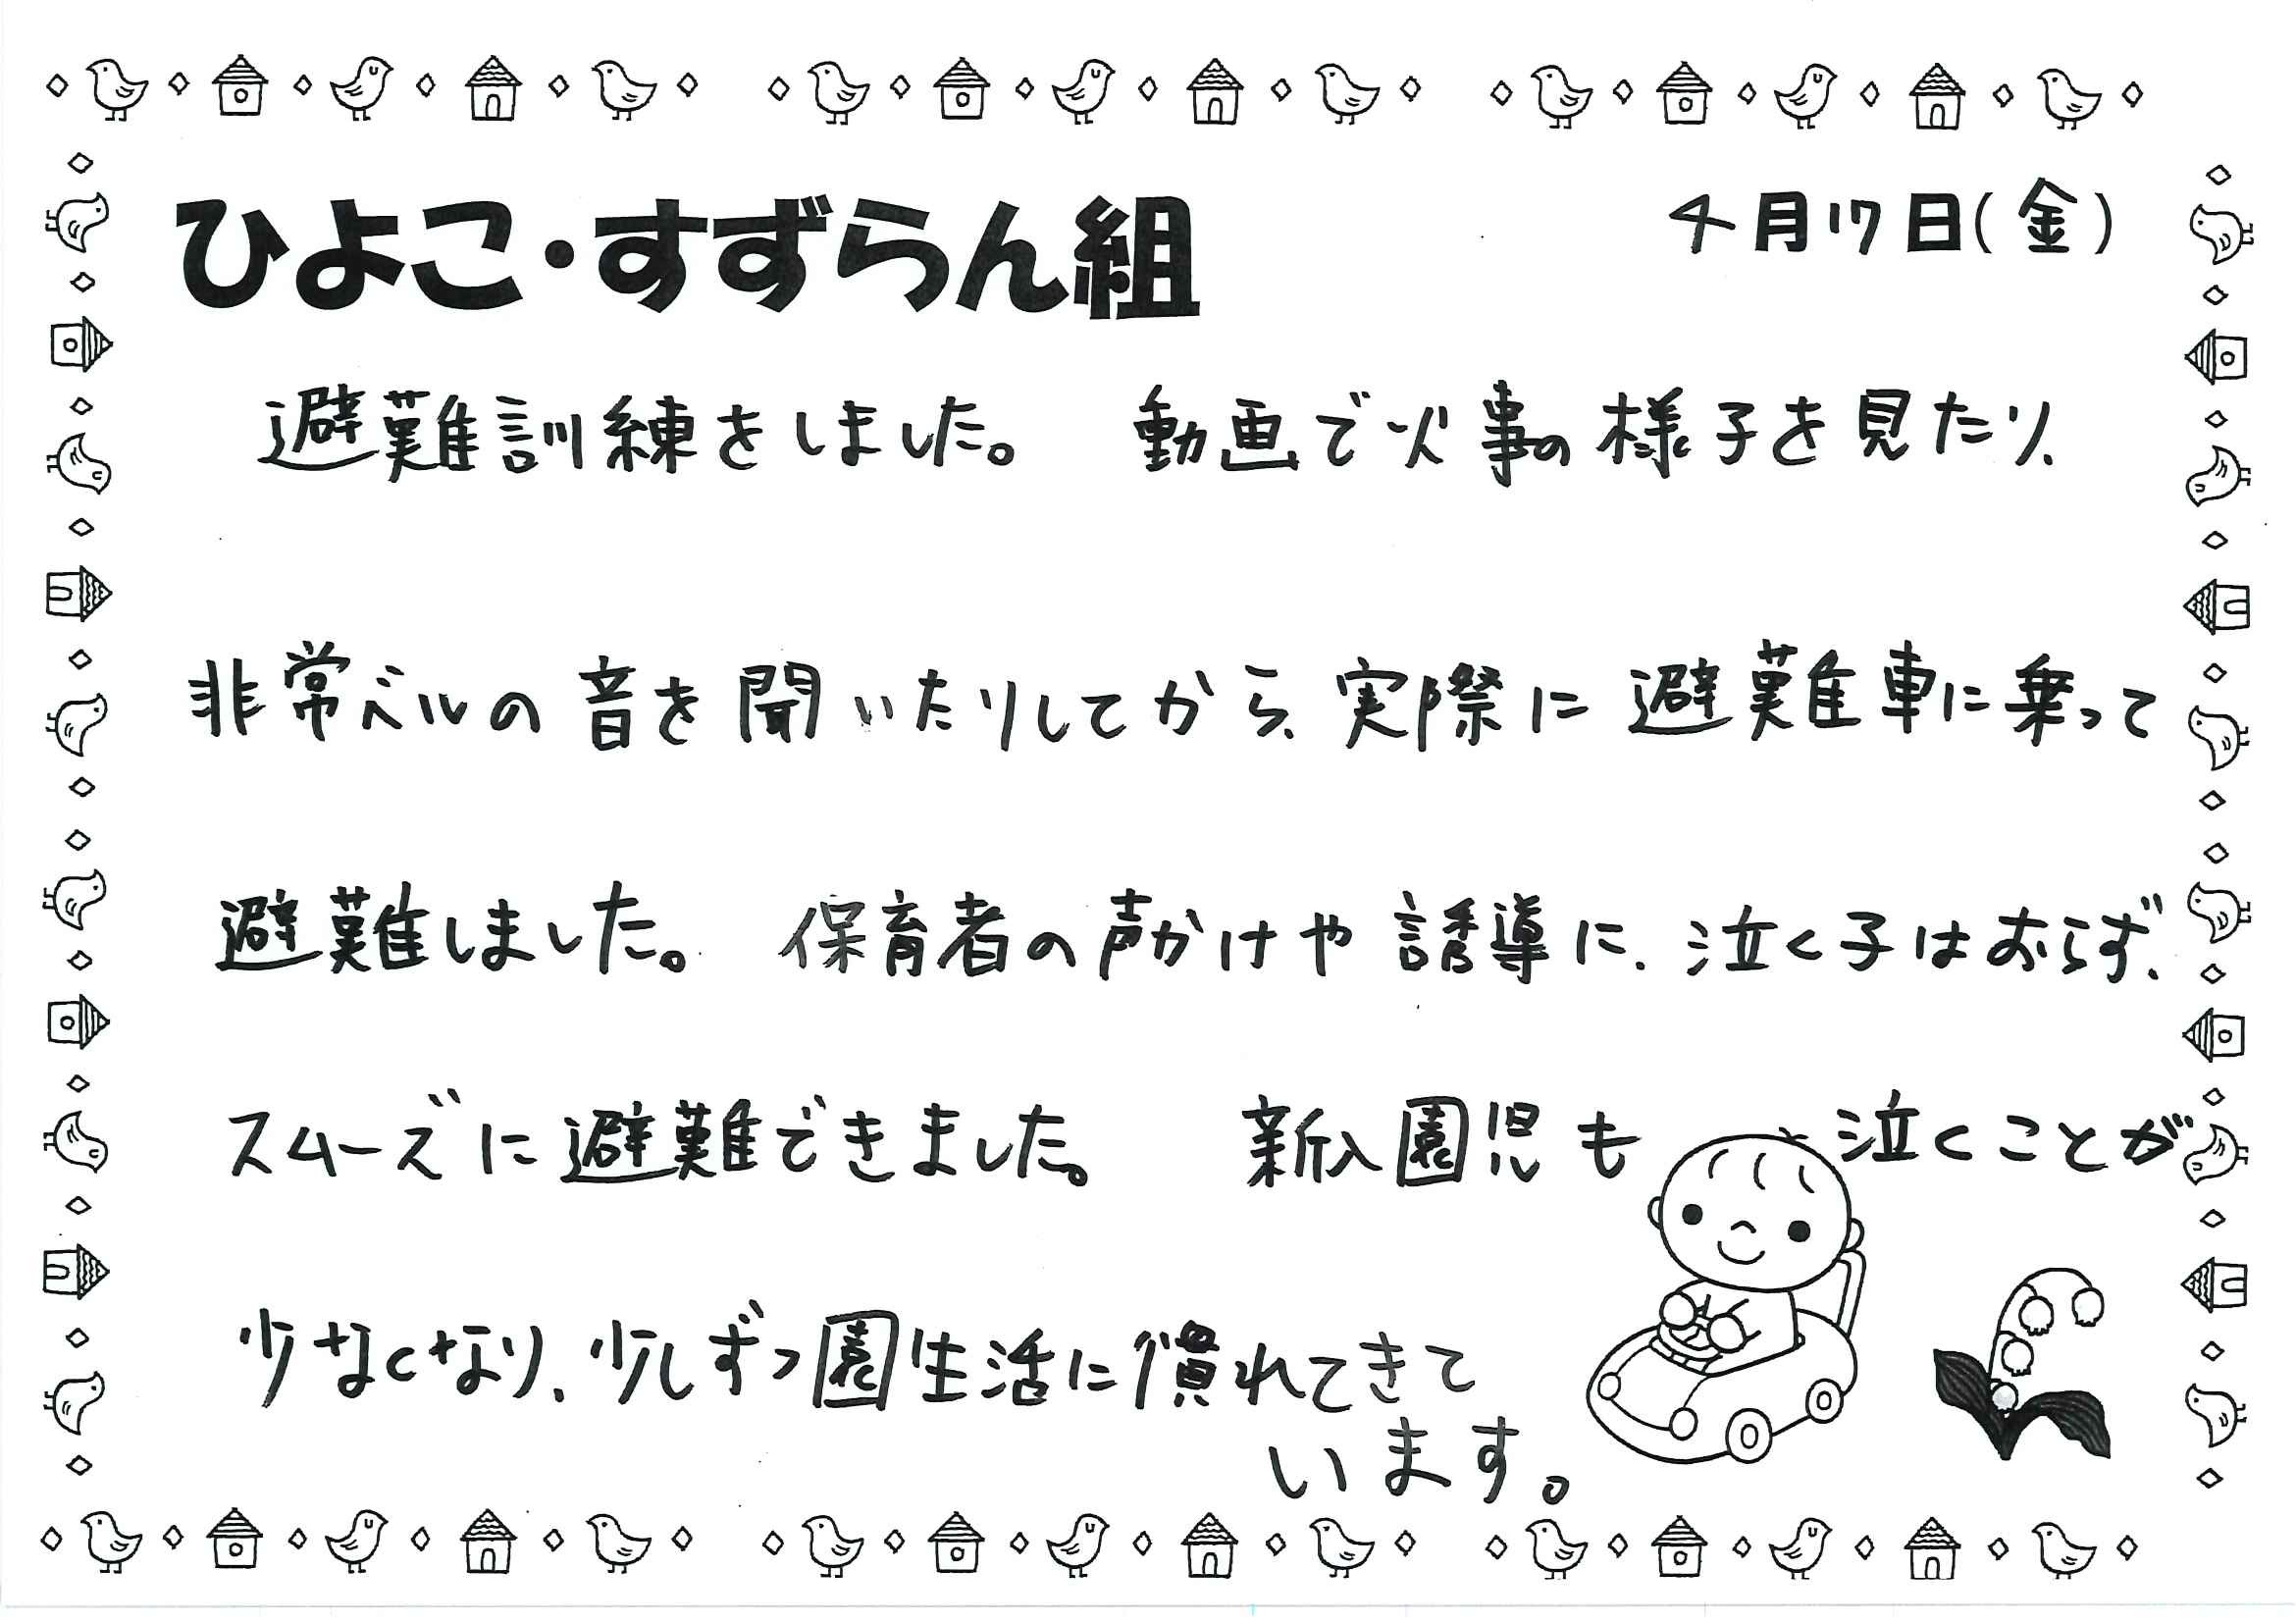 ひよこ・すずらん組
4月17日(金)
避難訓練をしました。 動画で火事の様子を見たり、
非常ベルの音を聞いたりしてから、実際に避難車に乗って
避難しました。 保育者の声かけや誘導に、泣く子はおらず、
スムーズに避難できました。 新入園児も 泣くことが
少なくなり、少しずつ園生活に慣れてきて
います。